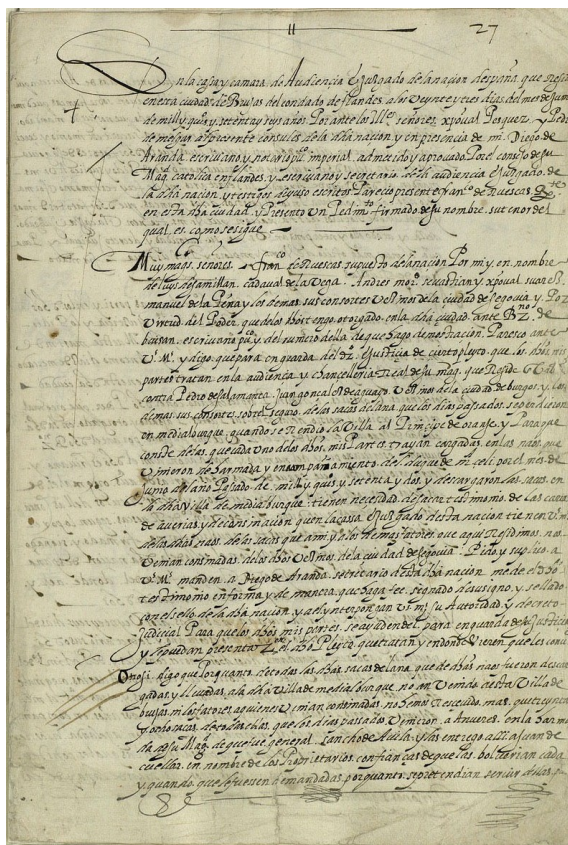 27
En la casa y camara de Audiencia E Juzgado de la nacion despaña que Reside
en esta ciudad de Brujas del condado de flandes a los Veynte y tres dias del mes de Jun
de mill y quis y setenta y seys años Por ante los Ille señores xpoual Perquez y Pedro
de a el presente consules de la dha nacion y en presencia de mi Diego de
Aranda escriuano y notario puco imperial admetido y aprouado Por el consejo de su
Magd catolica en flandes y escriuano y secretario de la audiencia E Juzgado de
la dha nacion y testigos de yuso escritos Parecio presente franco de Nuescas
en esta dha ciudad y Presento Un Pedimto firmado de su nombre su tenor del
qual es como se sigue
Muy mags señores franco de Nuescas supuesto de la nacion Por mi y en nombre
de luys de samillan cadaual de la Vega Andres mo sebastian y xpoual suarez
manuel de la Peña y los demas sus consortes Vos de la ciudad de segouia y Por
Virtud del Poder que dellos tengo otorgado en la dha ciudad ante Bzno de
baisan escriuano puco y del numero della de que hago demostracion Paresco ante
V. M. y digo que para en guarda del dro E Justicia de cierto pleyto que los dhos mis
partes tratan en la audiencia y chancelleria Real de su mag. que Reside en Vallid
contra Pedro de salamanca Juan goncalez de aguayo Vos de la ciudad de burgos y los
demas sus consortes sobre el seguro de las sacas de lana que los dias passados se perdieron
en medialburque quando se Rendio la Villa al Principe de oranje y Para que
conste de las que cada Uno de los dhos mis Partes trayan cargadas en las naos que
Vinieron de harmada y en acompañamiento del duque de mi celi por el mes de
Junio del año Passado de mill y quis y setenta y dos y descargaron las sacas en
la dha villa de medialburque tienen necesidad de sacar testimonio de los
de auerias y de consinacion que en la casa E Juzgado desta nacion tienen Vs ms
de las dhas naos de las sacas que a mi y a los demas fatores que aqui Residimos nos
Venian consinadas de los dhos Vos de la ciudad de segouia Pido y supco a
Vs Ms manden a Diego de Aranda secretario desta dha nacion me de el dho
testimonio en forma y de manera que haga fee signado de su signo y sellado
con el sello de la dha nacion y a el interpongan Vs ms su Autoridad y decreto
Judicial Para que los dhos mis partes se ayuden del para en guarda de su Justicia
y lo puedan presentar En el dho Pleyto que tratan y en donde Vieren que les conuiene
Otrosi digo que Por quanto de todas las dhas sacas de lana que de dhas naos fueron descar
gadas y lleuadas a la dha Villa de medialburque no an Venido a esta Villa de
brujas ni los fatores a quienes Venian consinadas no hemos Rescebido mas que treynta
y ocho sacas de todas ellas que los dias passados Vinieron a Anueres en la harma
da de su Mag. de que fue general sancho de Auila y las entrego alli a Juan de
cuellar en nombre de los Proprietarios con fiancas de que las bolueria cada
y quando que le fuesen demandadas por quanto se pretendian seruir dellas